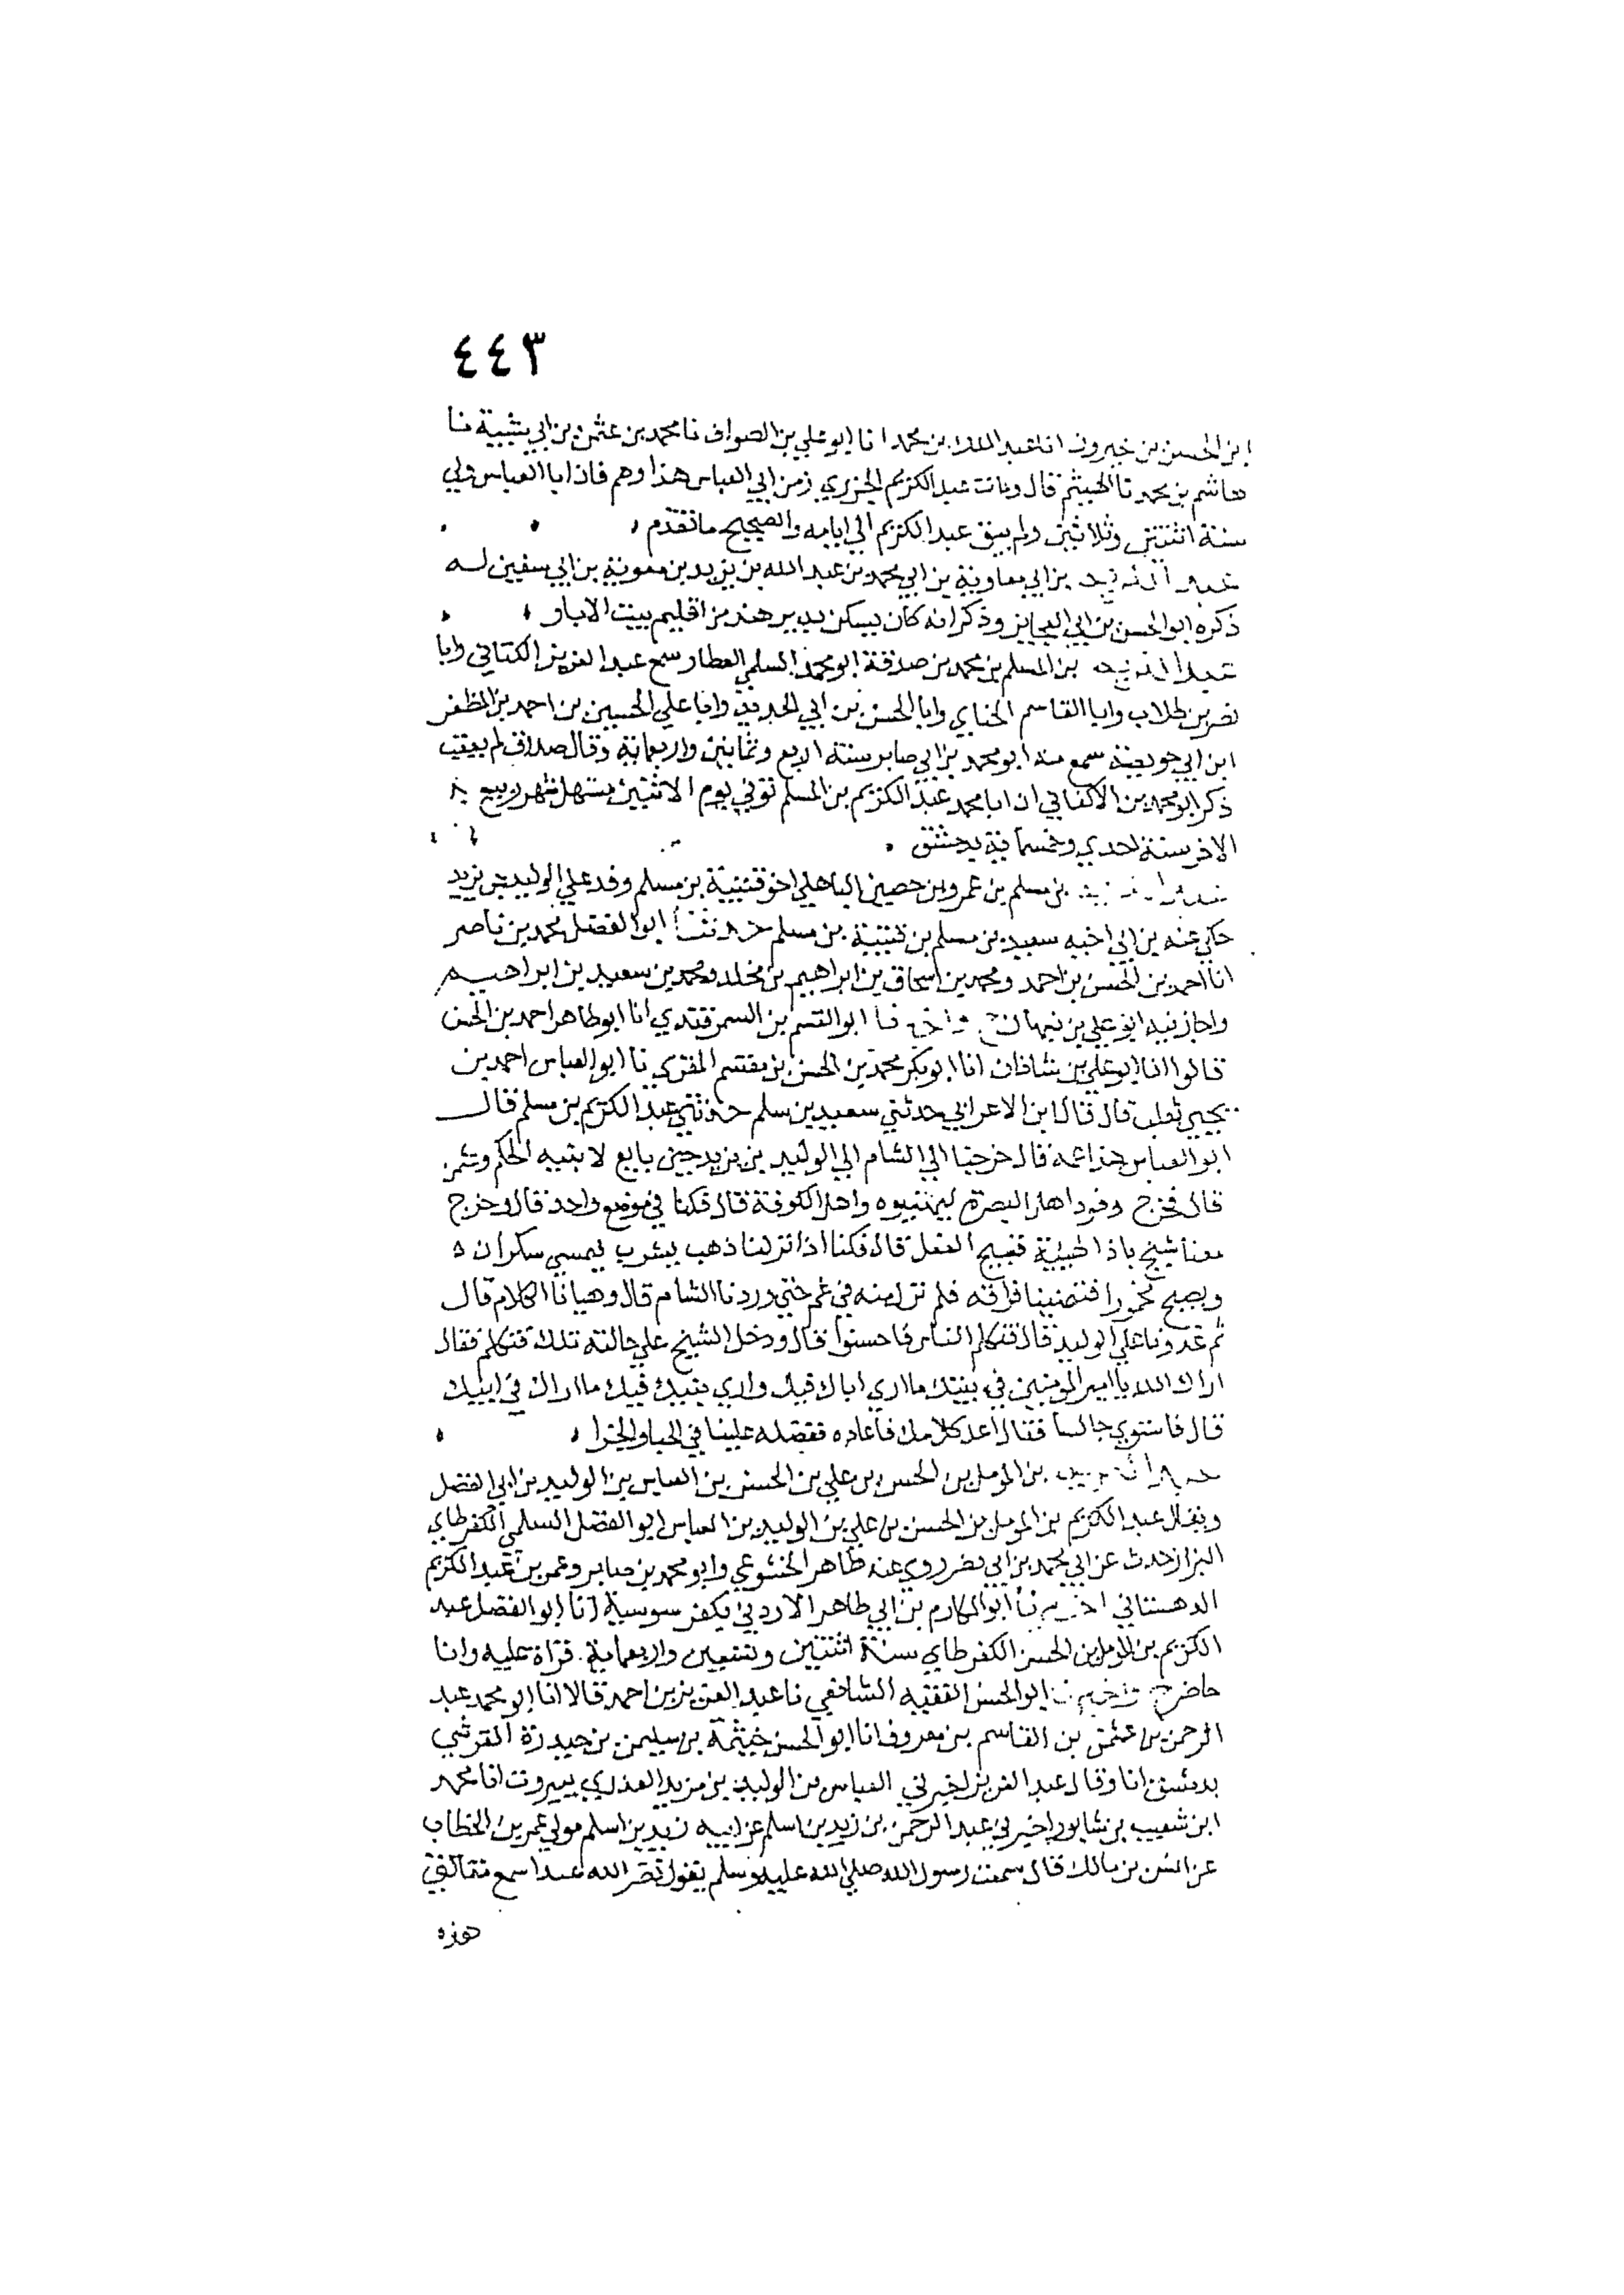 ٤٤٣
ابن الحسن بن خيرون انا عبد الملك بن محمد انا ابو علي بن الصواف نا محمد بن عثمن بن ابي شيبة نا
هاشم بن محمد نا الهيثم قال ومات عبد الكريم الجزري زمن ابي العباس هذا وهم فان ابا العباس ولي
سنة اثنتين وثلاثين ولم يبق عبد الكريم الي ايامه والصحيح ما تقدم
عبد الكريم بن ابي معاوية بن ابي محمد بن عبد الله بن يزيد بن معوية بن ابي سفين له
ذكره ابو الحسن بن ابي العجايز وذكر انه كان يسكن بدير هند من اقليم بيت الابار
عبد الكريم بن المسلم بن محمد بن صدقة ابو محمد السلمي العطار سمع عبد العزيز الكتاني وابا
نصر بن طلاب وابا القاسم الحناي وابا الحسن بن ابي الحديد وابا علي الحسين بن احمد بن المظفر
ابن ابي حريصة سمع منه ابو محمد بن ابي صابر سنة اربع وثمانين واربعماية وقال صدوق لم يعقب
ذكر ابو محمد بن الاكفاني ان ابا محمد عبد الكريم بن المسلم توفي يوم الاثنين مستهل شهر ربيع
الاخر سنة احدي وخمسماية بدمشق
عبد الكريم بن مسلم بن عمرو بن حصين الباهلي اخو قتيبة بن مسلم وفد علي الوليد بن يزيد
حكي عنه بن ابي اخيه سعيد بن مسلم بن قتيبة بن مسلم حدثنا ابو الفضل محمد بن ناصر
انا احمد بن الحسن بن احمد ومحمد بن اسحاق بن ابراهيم بن مخلد ومحمد بن سعيد بن ابراهيم
واجاز نيه ابو علي بن نبهان ح واخبرنا ابو القسم بن السمرقندي انا ابو طاهر احمد بن الحسن
قالوا انا ابو علي بن شاذان انا ابو بكر محمد بن الحسن بن مقسم المقري نا ابو العباس احمد بن
يحيي ثعلب قال قال ابن الاعرابي حدثني سعيد بن سلم حدثني عبد الكريم بن مسلم قال
ابو العباس هذا عمه قال خرجنا الي الشام الي الوليد بن يزيد حين بايع لابنيه الحكم وعثمن
قال فخرج وفود اهل البصرة ليهنيوه واهل الكوفة قال فكنا في موضع واحد قال وخرج
معنا شيخ باذ الهيئة قبيح الفعل قال فكنا اذا نزلنا ذهب يشرب فيمسي سكران
ويصبح مخمورا فتمنينا فراقه فلم نزل منه في غم حتي وردنا الشام قال وهيانا الكلام قال
ثم غدونا علي الوليد قال فتكلم الناس فاحسنوا قال ودخل الشيخ علي حالته تلك فتكلم فقال
اراك الله يا امير المومنين في بنيك ما اري اباك فيك واري بنيك فيك ما اراك في ابيك
قال فاستوي جالسا فقال اعد كلامك فاعاده ففضله علينا في الحبا والجزا
عبد الكريم بن المومل بن الحسن بن علي بن الحسن بن العباس بن الوليد بن ابي الفضل
ويقال عبد الكريم بن المومل بن الحسن بن علي بن الوليد بن العباس ابو الفضل السلمي الكفرطابي
البزاز حدث عن ابي محمد بن ابي نصر روي عنه طاهر الخشوعي وابو محمد بن صابر وعمر بن عبد الكريم
الدهستاني اخبرنا ابو المكارم بن ابي طاهر الازدي بكفر سوسية انا ابو الفضل عبد
الكريم بن المومل بن الحسن الكفرطابي سنة اثنتين وتسعين واربعماية قراة عليه وانا
حاضر ح واخبرنا ابو الحسن الفقيه الشافعي نا عبد العزيز بن احمد قالا انا ابو محمد عبد
الرحمن بن عثمن بن القاسم بن معروف انا ابو الحسن خيثمة بن سليمن بن حيدرة القرشي
بدمشق انا وقال عبد العزيز اخبرني العباس بن الوليد بن مزيد العذري ببيروت انا محمد
ابن شعيب بن شابور اخبرني عبد الرحمن بن زيد بن اسلم عن ابيه زيد بن اسلم مولي عمر بن الخطاب
عن انس بن مالك قال سمعت رسول الله صلي الله عليه وسلم يقول نضر الله عبدا سمع مقالتي